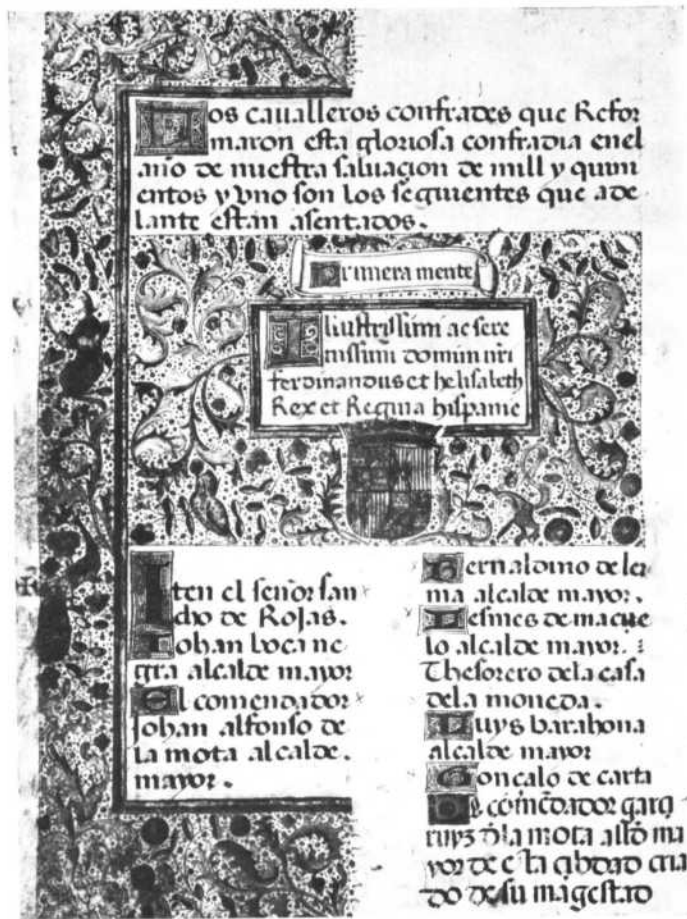 Los caualleros confrades que Refor
maron esta gloriosa confradia enel
año de nuestra saluaçion de mill y quini
entos y vno son los seguientes que ade
lante estan asentados.
Primera mente
Illustrissimi ac sere
nissimi domini nr̃i
ferdinandus et helisabeth
Rex et Regina hispanie
Iten el señor san
cho de Rojas.
Iohan boca ne
gra alcalde mayor
El comendador
Johan alfonso de
la mota alcalde.
mayor.
Bernaldino de ler
ma alcalde mayor.
Pesmes de maçue
lo alcalde mayor.
Thesorero dela casa
dela moneda.
Luys barahona
alcalde mayor
Gonçalo de carta
El comẽdador garçi
ruyz dla mota allde ma
yor de esta çibdad cria
do de su magestad